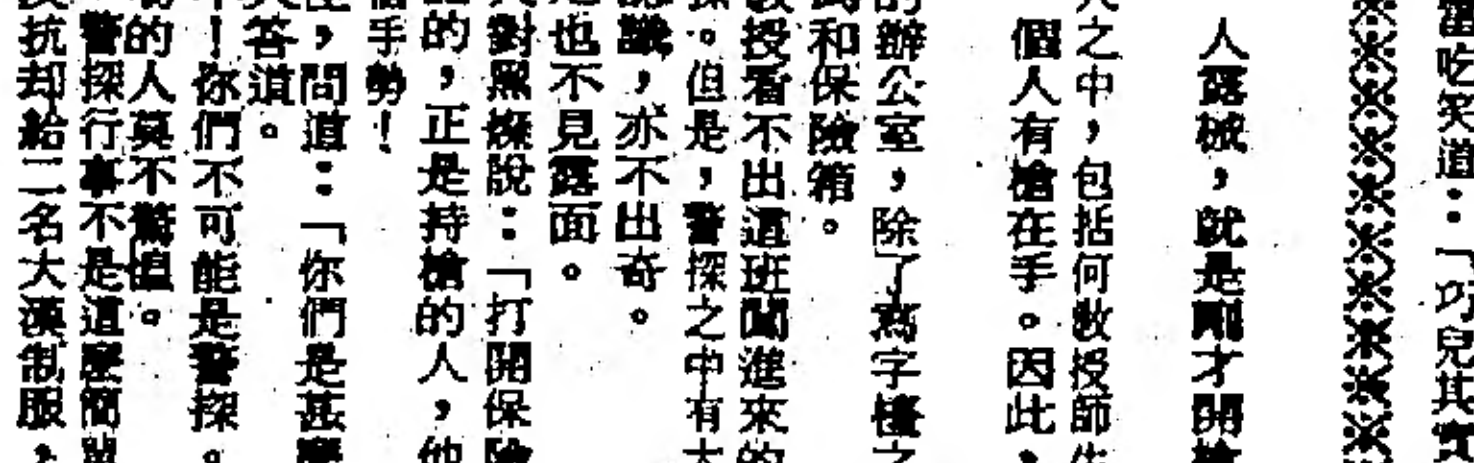 當吃笑道：「巧兒其實
人露械，就是剛才開槍
之中，包括何敎授師生
個人有槍在手。因此，
的辦公室，除了寫字檯之
和保險箱。
敎授看不出這班闖進來的
。但是，警探之中有大
識，亦不出奇。
也不見露面。
對黑擦說：「打開保險
的，正是持槍的人，他
手勢！
，問道：「你們是甚麼
答道。
！你們不可能是警探。
的人莫不驚惶。
警探行事不是這麼簡單
抗却給二名大漢制服，